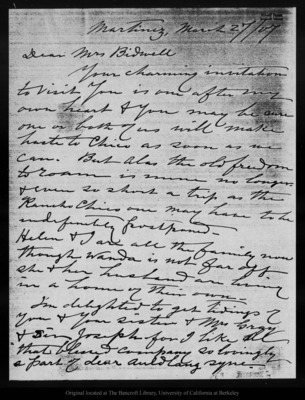 Martinez, March 27/07
Dear Mrs Bidwell
Your charming invitation
to visit you is one after my
own heart & you may be sure
one or both of us will make
haste to Chico as soon as we
can. But alas the old freedom
to roam is mine no longer
& even so short a trip as the
Rancho Chico one may have to be
indefinitely postponed.
Helen & I are all the family now
though Wanda is not far off.
she & her husband are living
in a home of their own.
I'm delighted to get tidings of
you & your sister & Mrs Gray
& Sir Joseph for I like all
that blessed company so lovingly
a part of dear auld lang syne
Original located at The Bancroft Library, University of California at Berkeley